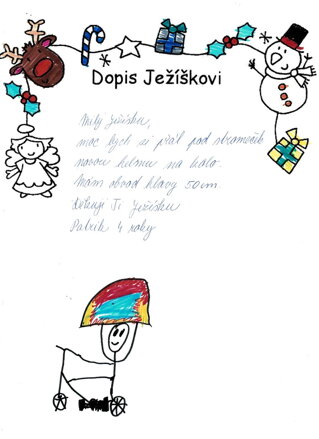 Dopis Ježíškovi
Milý Ježíšku,
moc bych si přál pod stromeček
novou helmu na kolo.
Mám obvod hlavy 50cm
Děkuji Ti Ježíšku
Patrik 4 roky